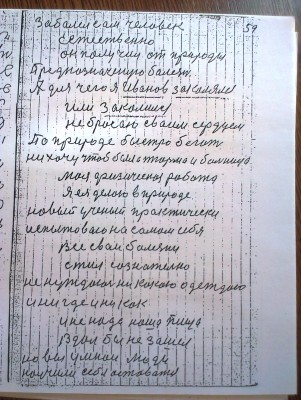 59
Заболел сам человек
естественно
он получил от природы
Предназначенную болезнь
А для чего я Иванов закаляли
или Закалился
не бросаю своим сердцем
По природе быстро бегать
ни хочу чтоб была тюрма и больница
моя физическая работа
Я ея делаю в природе
новый ученый практически
испытоваю на самом себя
Все свои болезни
стил сознателно
не нуждаюсь ни какою одеждою
и ни где и ни как
и не надо наша пища
В дом бы не зашел
новыи умнои люди
научили себя оставати